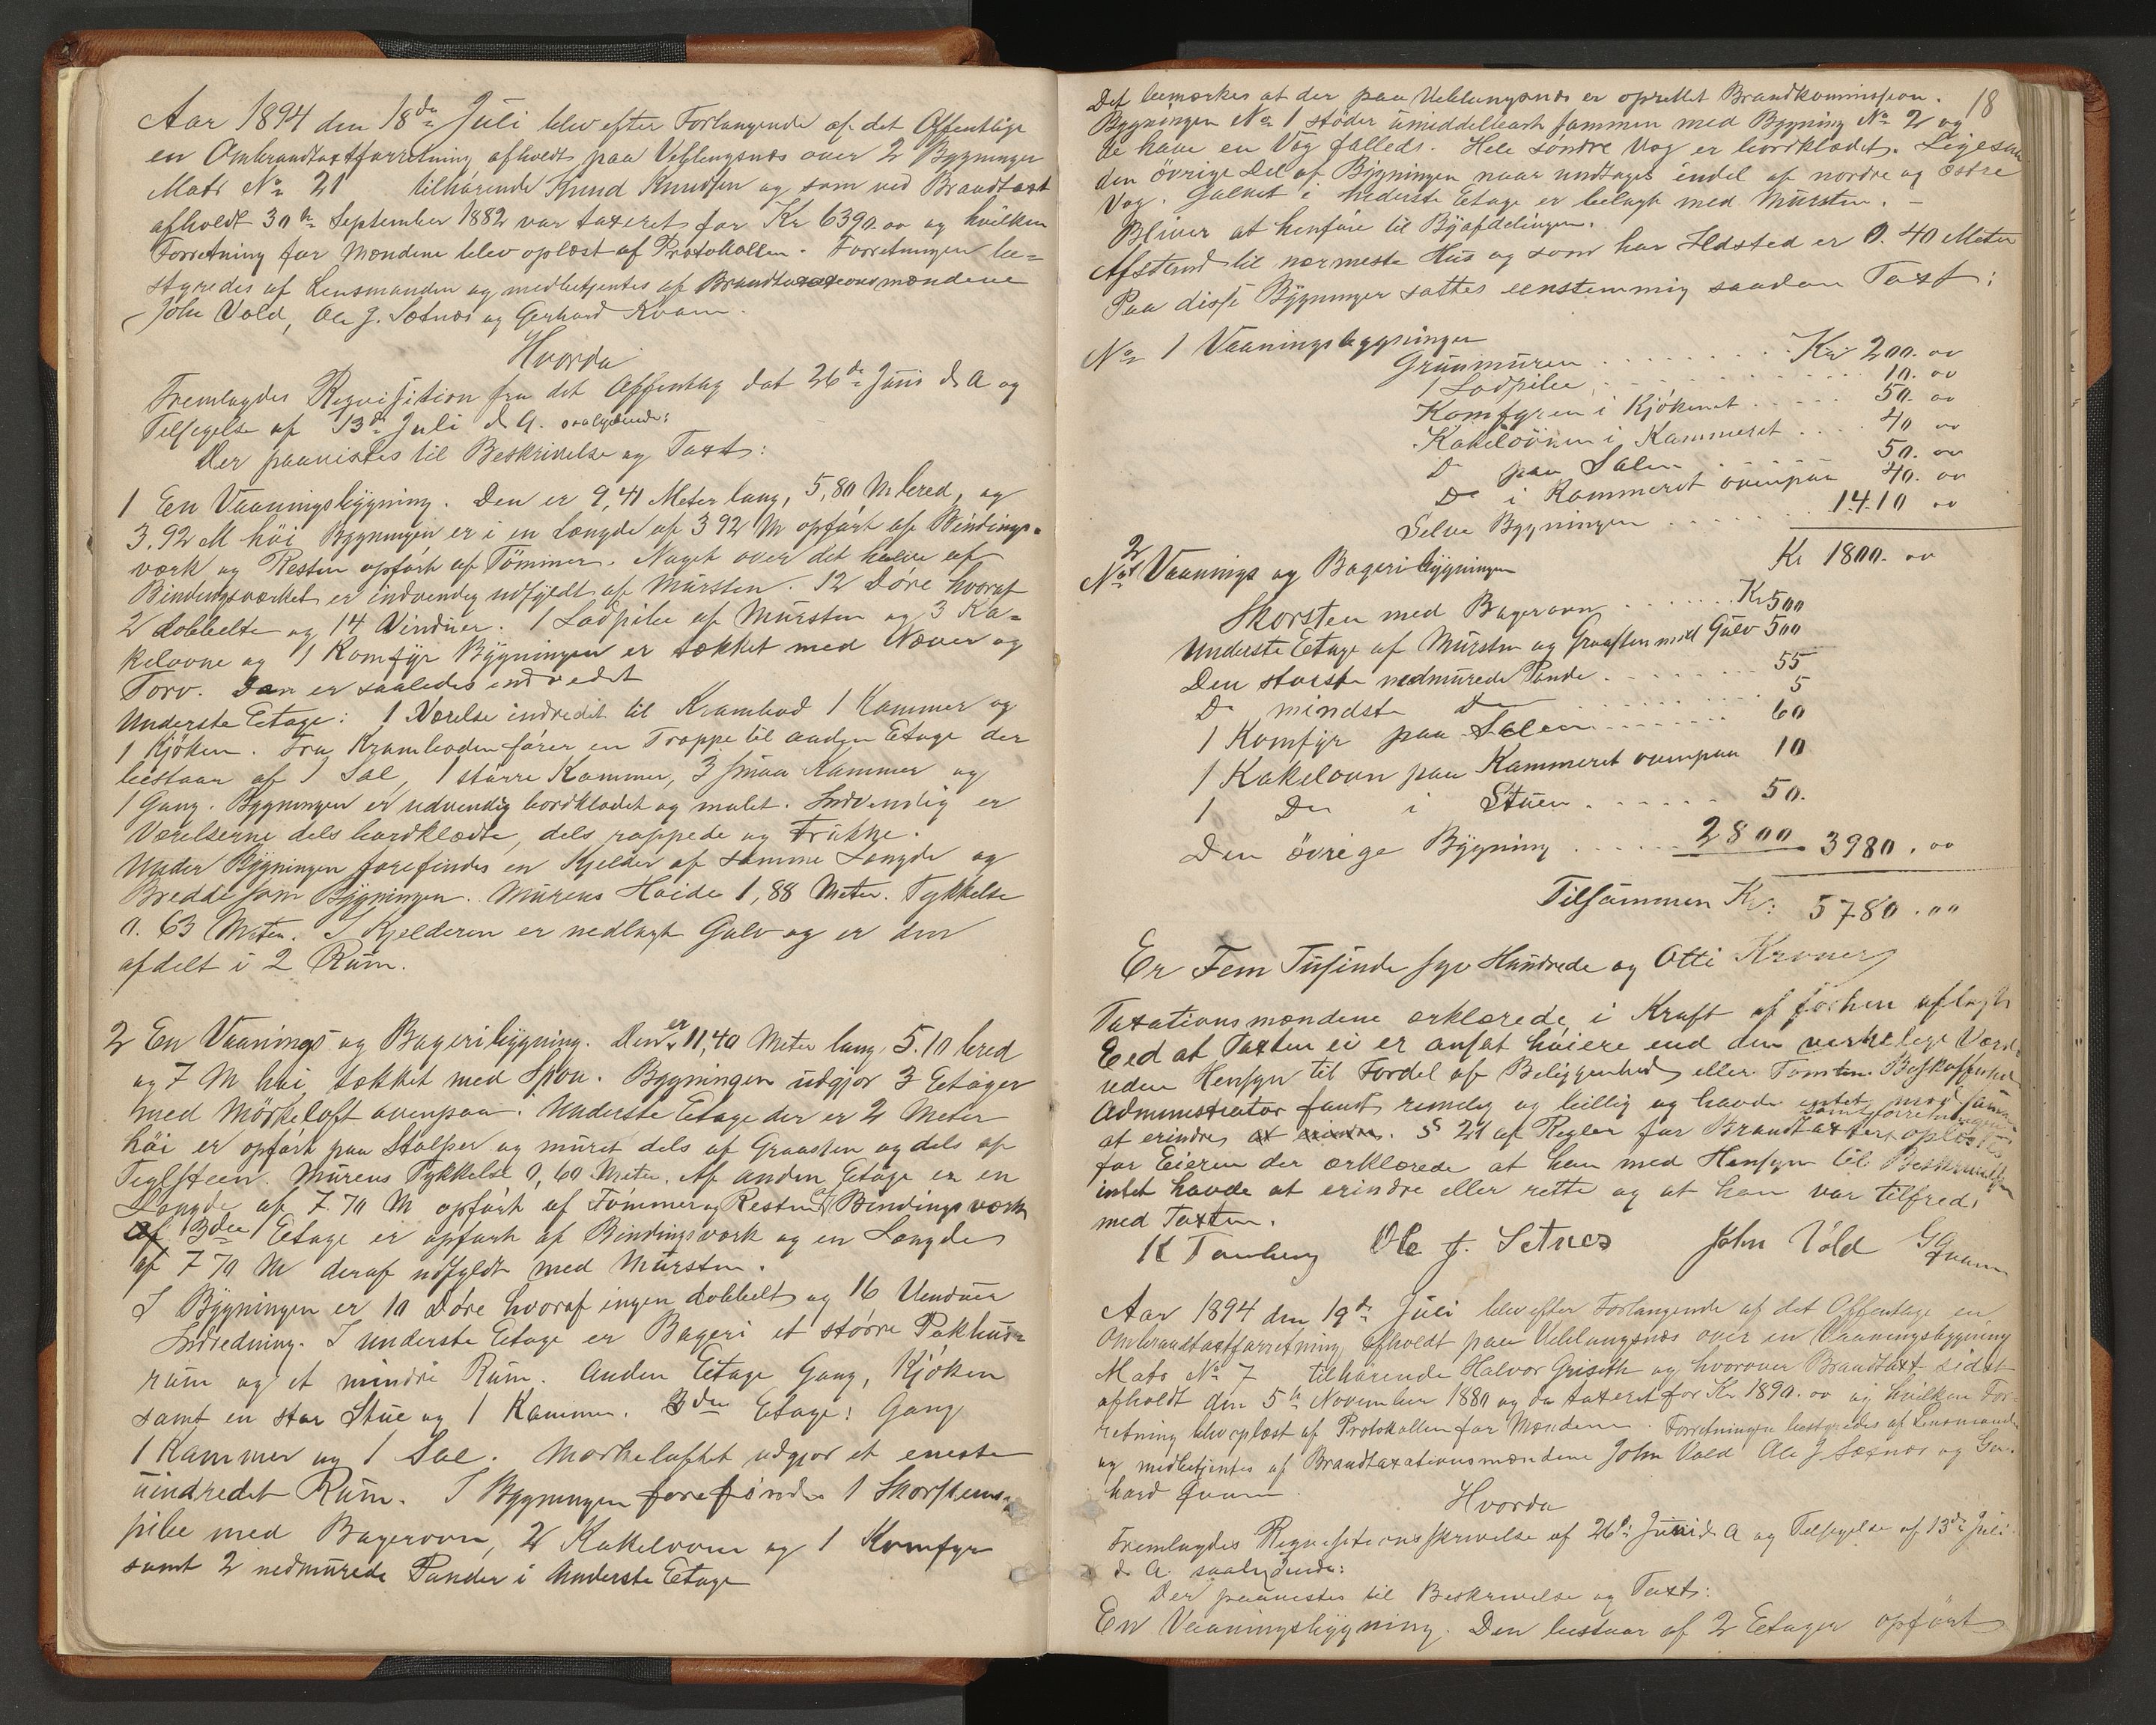 Aar 1894 den 18de Juli blev efter Forlangende af det Offentlige
en Ombrandtaxtforretning afholdt paa Veblungsnæs over 2 Bygninger
Matr No 21 tilhørende Knud Knudsen og som ved Brandtaxt
afholdt 30te September 1882 var taxeret for Kr 6390.00 og hvilken
Forretning for Mændene blev oplæst af Protokollen. Forretningen be=
styredes af Lensmanden og medbetjentes af Brandtaxationsmændene
John Vold, Ole J. Sætnæs og Gerhard Kvam.
Hvorda
Fremlagdes Requisition fra det Offentlig dat 26de Juni d. A og
Tilsigelse af 13de Juli d. A. saalydende:
Der paavistes til Beskrivelse og Taxt:
1 En Vaaningsbygning. Den er 9,41 Meter lang, 5,80 M bred, og
3.92 M høi Bygningen er i en Længde af 3 92 M opført af Bindings=
værk og Resten opført af Tømmer. Noget over det halve af
Bindingsværket er indvendig udfyldt af Mursten. 12 Døre hvoraf
2 dobbelte og 14 Vinduer. 1 Lodpibe af Mursten og 3 Ka=
kelovne og 1 Komfyr Bygningen er tækket med Næver og
Torv. Den er saaledes indredet
Underste Etage: 1 Værelse indredet til Krambod 1 Kammer og
1 Kjøken. Fra Kramboden fører en Trappe til anden Etage der
bestaar af 1 Sal, 1 større Kammer, 3 smaa Kammer og
1 Gang. Bygningen er udvendig bordklædt og malet. Indvendig er
Værelserne dels bordklædte, dels rappede og Trukne.
Under Bygningen forefindes en Kjelder af samme Længde og
Bredde som Bygningen. Murens Høide 1,88 Meter. Tykkelse
0. 63 Meter. I Kjelderen er nedlagt Gulv og er den
afdelt i 2 Rum.
2 En Vaanings og Bageribygning. Den er 11,40 Meter lang, 5.10 bred
og 7 M høi tækket med Spon. Bygningen udgjør 3 Etager
med Mørkeloft ovenpaa. Underste Etage der er 2 Meter
høi er opført paa Stolper og muret dels af Graasten og dels af
Teglsteen. Murens Tykkelse 0,60 Meter. Af anden Etage er en
Længde af 7.70 M opført af Tømmer og Resten af Bindingsværk
af 3die Etage er opført af Bindingsværk og en Længde
af 7 70 M deraf udfyldt med Mursten.
I Bygningen er 10 Døre hvoraf ingen dobbelt og 16 Vinduer
Indredning. I underste Etage er Bageri et større Pakhus=
rum og et mindre Rum. Anden Etage Gang, Kjøken
samt en stor Stue og 1 Kammer. 3die Etage: Gang
1 Kammer og 1 Sal. Mørkeloftet udgjør et eneste
uindredet Rum. I Bygningen forefindes 1 Skorstens=
pibe med Bagerovn, 2 Kakelovne og 1 Komfyr
samt 2 nedmurede Pander i underste Etage
18
Det bemærkes at der paa Veblungsnæs er oprettet Brandkommission.
Bygningen No 1 støder umiddelbart sammen med Bygning No 2 og
de have en Væg fælleds. Hele søndre Væg er bordklædet. Ligesaa
den øvrige Del af Bygningen naar undtages endel af nordre og østre
Væg. Gulvet i nederste Etage er belagt med Mursten. –
Bliver at henføre til Byafdelingen.
Afstand til nærmeste Hus og som har Ildsted er 0. 40 Meter
Paa disse Bygninger sattes eenstemmig saadan Taxt:
No 1 Vaaningsbygningen
Grunmuren . . . . . . . Kr 200. 00
1 Lodpibe . . . . . . . 10. 00
Komfyren i Kjøkenet . . . . . 50. 00
Kakelovnen i Kammeret . . . . 40 00
Do paa Salen . . . . 50. 00
Do i Kammeret ovenpaa 40. 00
Selve Bygningen . . . . . . 1410 00
Kr 1800. 00
No 2 Vaanings og Bageribygningen
Skorsten med Bagerovn . . . . . . Kr 500
Underste Etage af Mursten og Graasten med Gulv 500
Den største nedmurede Pande . . . . . . . 55
Do mindste Do . . . . . . 5
1 Komfyr paa Salen . . . . . . . 60
1 Kakelovn paa Kammeret ovenpaa 10
1 Do i Stuen . . . . . . 50.
Den øvrige Bygning . . . . . . 2800 3980.00
Tilsammen Kr: 5780.00
Er Fem Tusinde syv Hundrede og Otti Kroner
Taxationsmændene erklærede i Kraft af forhen aflagt
Eed at Taxten ei er ansat høiere end den virkelige Værdi
uden Hensyn til Fordel af Beliggenhed eller Tomten Beskaffenhed
Administrator fandt rimelig og billig og havde intet mod samme
at erindre at erindre. § 21 af Regler for Brandtaxter samt Forretningen oplæstes
for Eieren der erklærede at han med Hensyn til Beskrivelsen
intet havde at erindre eller rette og at han var tilfreds
med Taxten.
K Tønberg Ole J. Setnes John Vold GG Quam
Aar 1894 den 19de Juli blev efter Forlangende af det Offentlige en
Ombrandtaxtforretning afholdt paa Veblungsnæs over en Vaaningsbygning
Matr No 7 tilhørende Halvor Griseth og hvorover Brandtaxt sidst
afholdt den 5te November 1880 og da taxeret for Kr 1890.00 og hvilken For=
retning blev oplæst af Protokollen for Mændene. Forretningen bestyredes af Lensmanden
og medbetjentes af Brandtaxationsmændene John Vold Ole J Sætnæs og Ger=
hard Quam.
Hvorda
Fremlagdes Requisitionsskrivelse af 26de Juni d. A og Tilsigelse af 13de Juli
d. A. saalydende:
Der paavistes til Beskrivelse og Taxt:
En Vaaningsbygning. Den bestaar af 2 Etager opført